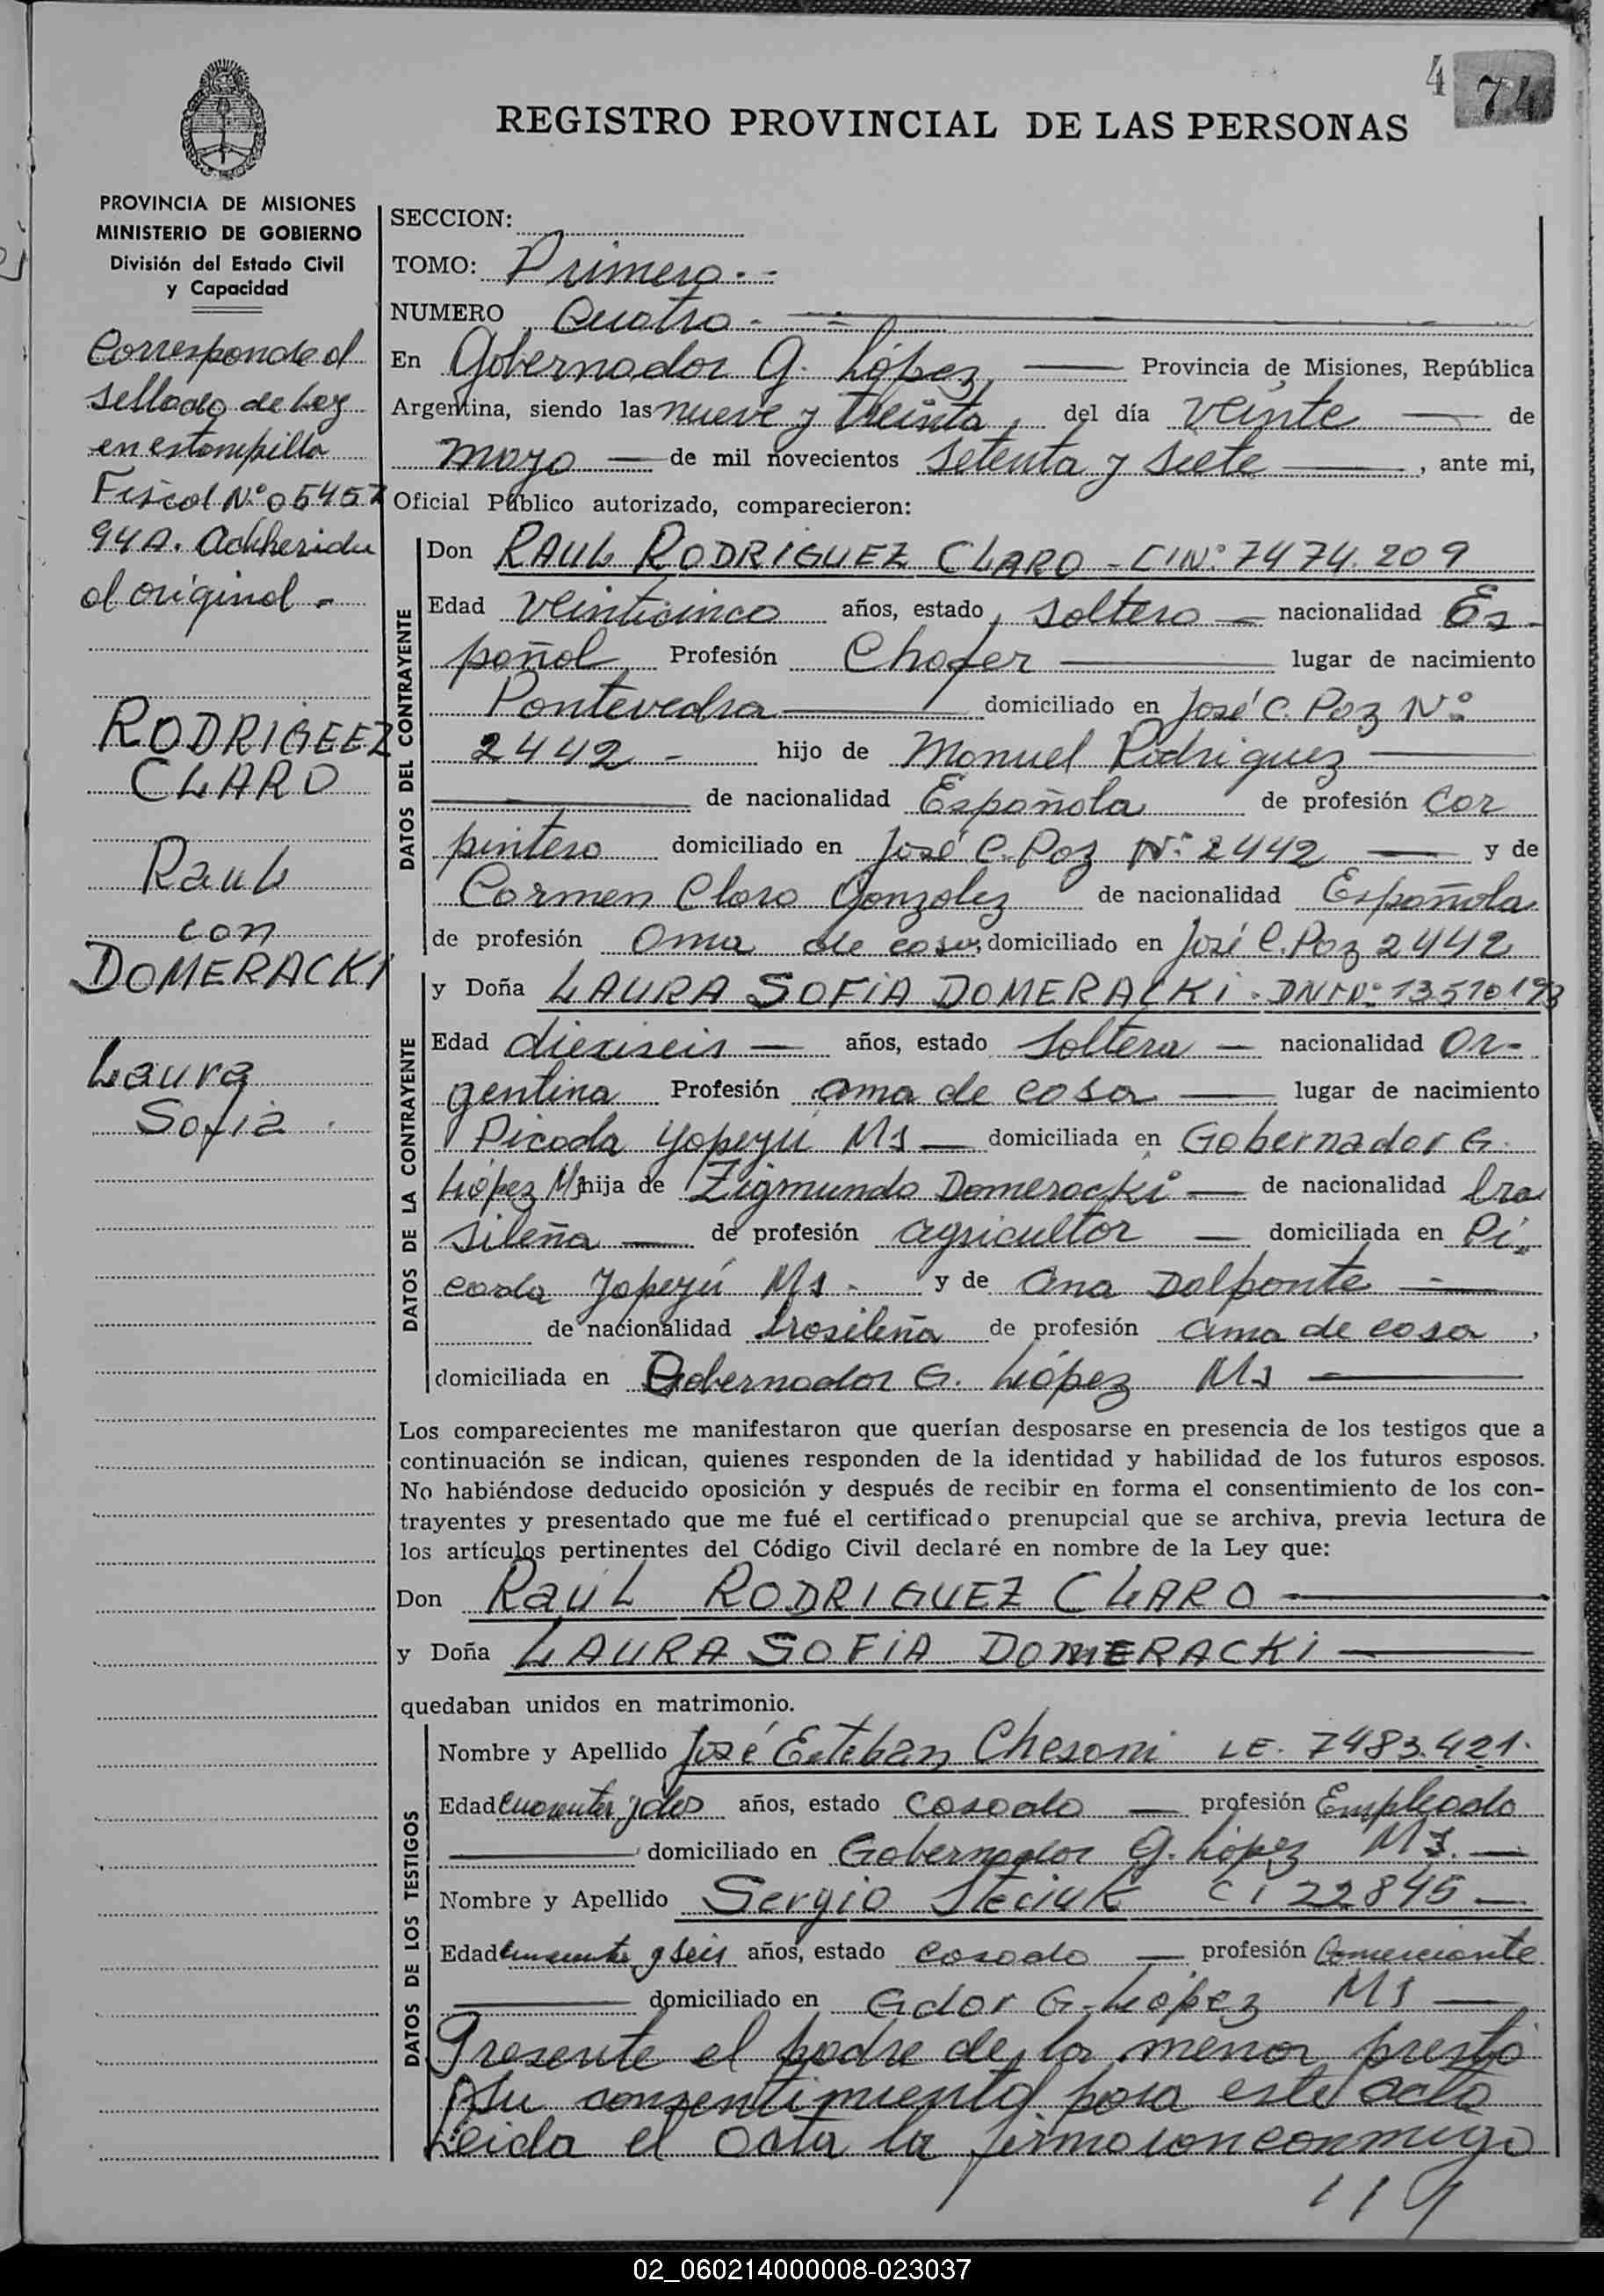 4 74
REGISTRO PROVINCIAL DE LAS PERSONAS
PROVINCIA DE MISIONES
MINISTERIO DE GOBIERNO
División del Estado Civil
y Capacidad
Corresponde al
sellado de Ley
en estampilla
Fiscal Nº 05457
94A. Adkheridu
al original -
RODRIGEEZ
CLARO
Raul
con
DOMERACKI
Laura
Sofia.
SECCION:
TOMO: Primero.-
NUMERO Cuatro.-
En Gobernador G. López, Provincia de Misiones, República
Argentina, siendo las nueve y treinta, del día veinte de
mayo de mil novecientos setenta y siete, ante mi,
Oficial Público autorizado, comparecieron:
DATOS DEL CONTRAYENTE
Don RAUL RODRIGUEZ CLARO - CINº 7474.209
Edad veinticinco años, estado soltero nacionalidad Es-
pañol Profesión Chofer lugar de nacimiento
Pontevedra domiciliado en José C. Paz Nº
2442 - hijo de Manuel Rodriguez
de nacionalidad Española de profesión car
pintero domiciliado en José C. Paz Nº 2442 y de
Carmen Claro Gonzalez de nacionalidad Española
de profesión Ama de casa, domiciliado en José C. Paz 2442
DATOS DE LA CONTRAYENTE
y Doña LAURA SOFIA DOMERACKI - DNI Nº 13510193
Edad dieciseis años, estado soltera nacionalidad Ar-
gentina Profesión ama de casa lugar de nacimiento
Picada Yapeyú Ms domiciliada en Gobernador G.
López Ms hija de Zigmundo Domeracki de nacionalidad bra
sileña de profesión agricultor domiciliada en Pi-
cada Yapeyú Ms - y de Ana Dalponte
de nacionalidad brasileña de profesión ama de casa,
domiciliada en Gobernador G. López Ms
Los comparecientes me manifestaron que querían desposarse en presencia de los testigos que a
continuación se indican, quienes responden de la identidad y habilidad de los futuros esposos.
No habiéndose deducido oposición y después de recibir en forma el consentimiento de los con-
trayentes y presentado que me fué el certificado prenupcial que se archiva, previa lectura de
los artículos pertinentes del Código Civil declaré en nombre de la Ley que:
Don RAÚL RODRIGUEZ CLARO
y Doña LAURA SOFIA DOMERACKI
quedaban unidos en matrimonio.
DATOS DE LOS TESTIGOS
Nombre y Apellido José Esteban Chesani LE. 7483.421.
Edad cuarenta y dos años, estado casado profesión Empleado
domiciliado en Gobernador G. López Ms.
Nombre y Apellido Sergio Steciuk CI 22845
Edad y seis años, estado casado profesión Comerciante
domiciliado en Gdor G. López Ms
Presente el padre de la menor prestó
su consentimiento para este acto
Leida el acta la firmaron conmigo
//
02_060214000008-023037